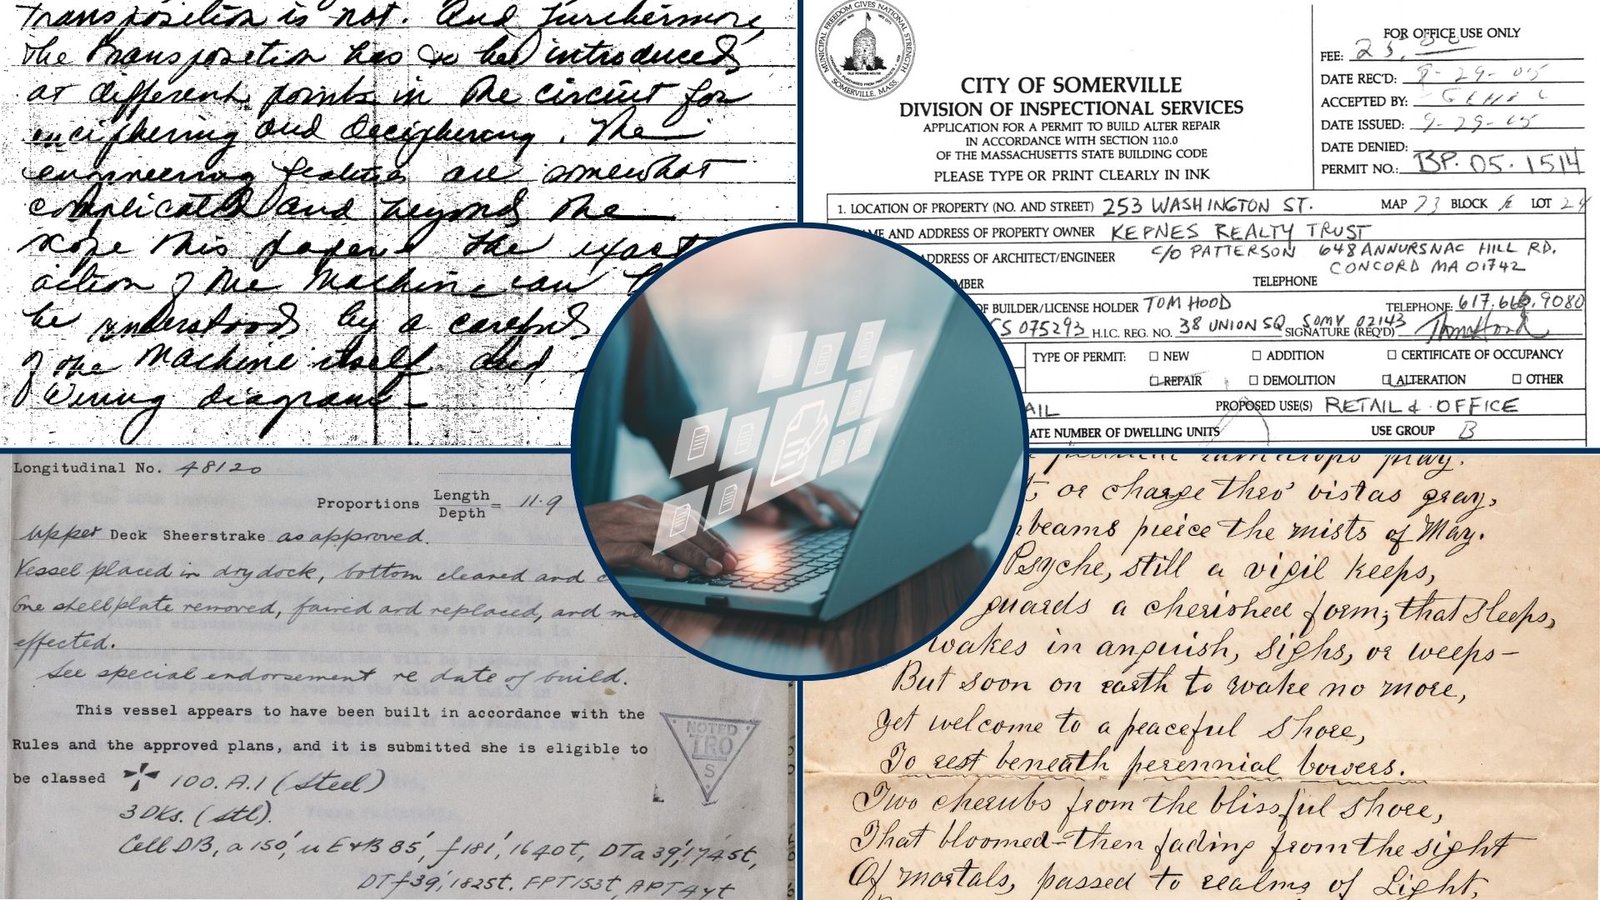 Transposition is not. And furthermore,
the transposition has to be introduced
at different points in the circuit for
enciphering and deciphering. The
engineering features are somewhat
complicated and beyond the
scope this paper. The exact
action of the machine can
be understood by a careful
of the machine itself and
Wiring diagram
MUNICIPAL FREEDOM GIVES NATIONAL STRENGTH
SOMERVILLE, MASS.
CITY OF SOMERVILLE
DIVISION OF INSPECTIONAL SERVICES
APPLICATION FOR A PERMIT TO BUILD ALTER REPAIR
IN ACCORDANCE WITH SECTION 110.0
OF THE MASSACHUSETTS STATE BUILDING CODE
PLEASE TYPE OR PRINT CLEARLY IN INK
FOR OFFICE USE ONLY
FEE: 25.
DATE REC'D: 8-29-05
ACCEPTED BY:
DATE ISSUED: 9-29-05
DATE DENIED:
PERMIT NO.: BP.05.1514
1. LOCATION OF PROPERTY (NO. AND STREET) 253 WASHINGTON ST. MAP 73 BLOCK E LOT 24
AND ADDRESS OF PROPERTY OWNER KEPNES REALTY TRUST
ADDRESS OF ARCHITECT/ENGINEER C/O PATTERSON 648 ANNURSNAC HILL RD.
CONCORD MA 01742
TELEPHONE
OF BUILDER/LICENSE HOLDER TOM HOOD TELEPHONE: 617.666.9080
CS 075293 H.I.C. REG. NO. 38 UNION SQ. SOMV 02143 SIGNATURE (REQ'D) Tom Hood
TYPE OF PERMIT: NEW ADDITION CERTIFICATE OF OCCUPANCY
REPAIR DEMOLITION ALTERATION OTHER
PROPOSED USE(S) RETAIL & OFFICE
NUMBER OF DWELLING UNITS USE GROUP B
Longitudinal No. 48120
Proportions Length/Depth = 11.9
Upper Deck Sheerstrake as approved.
Vessel placed in drydock, bottom cleaned and
One shellplate removed, faired and replaced, and
effected.
See special endorsement re date of build.
This vessel appears to have been built in accordance with the
Rules and the approved plans, and it is submitted she is eligible to
be classed 100.A.1 (Steel)
3 DKs. (Stl).
Cell DB, a 150', u E+B 85', f 181', 1640t, DTa 39', 1745t,
DTf 39', 1825t. FPT 153t, APT 47t
NOTED
IRO
S
or charge thro' vistas gray,
pierce the mists of May.
Psyche, still a vigil keeps,
guards a cherished form; that sleeps,
wakes in anguish, sighs, or weeps-
But soon on earth to wake no more,
Yet welcome to a peaceful shore,
To rest beneath perennial bowers.
Two cherubs from the blissful shore,
That bloomed-then fading from the sight
Of mortals, passed to realms of Light,